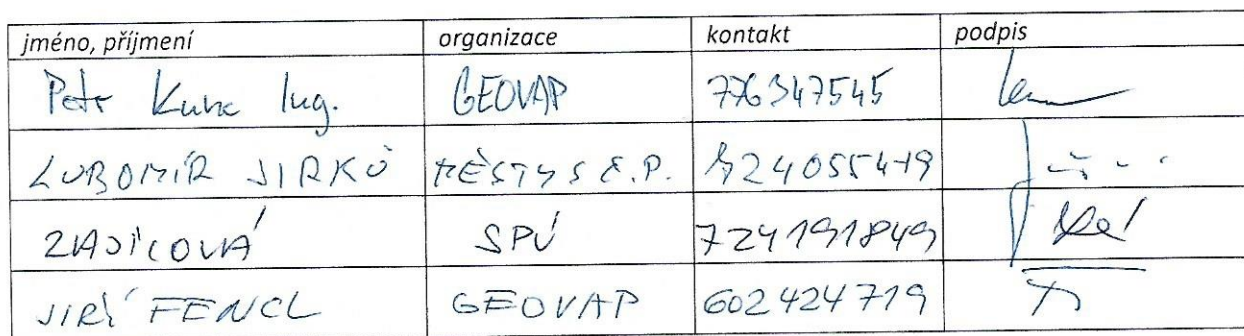 jméno, příjmení organizace kontakt podpis
Petr Kunc Ing. GEOVAP 776347545
LUBOMÍR JIRKŮ MĚSTYS Č.P. 724055419
ZAJÍCOVÁ SPÚ 724191849
JIŘÍ FENCL GEOVAP 602424719